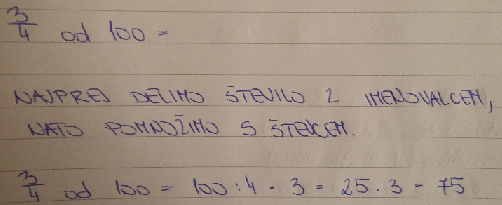 3/4 od 100 =
NAJPREJ DELIMO ŠTEVILO Z IMENOVALCEM,
NATO POMNOŽIMO S ŠTEVCEM.
3/4 od 100 = 100 : 4 · 3 = 25 · 3 = 75